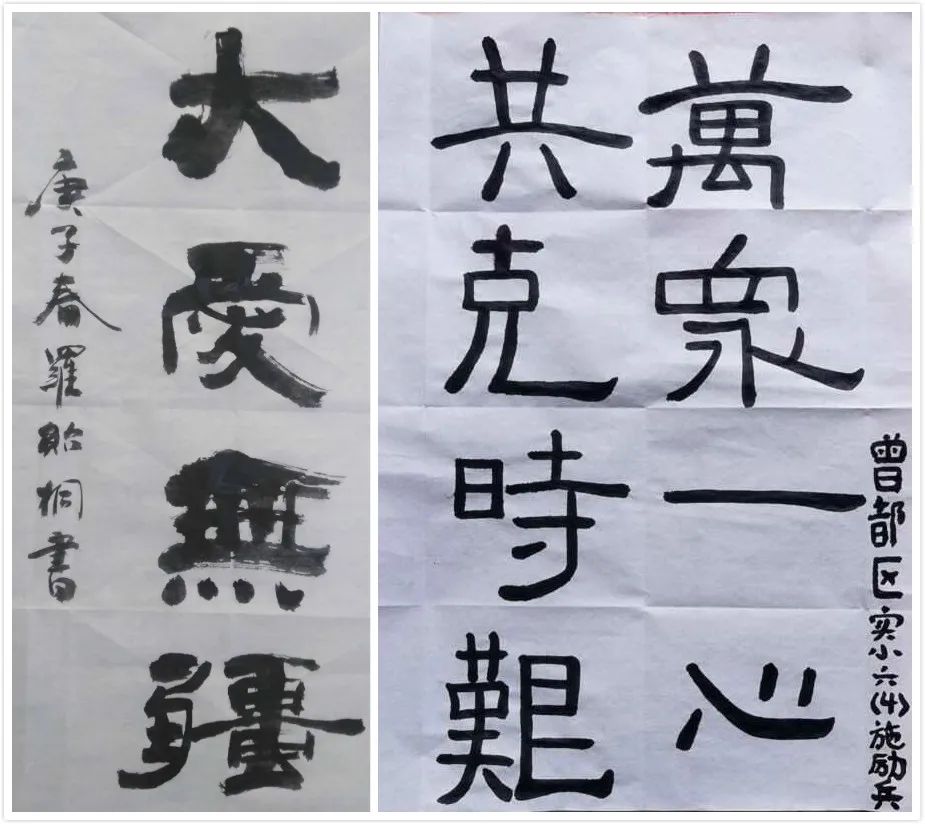 大愛無疆
庚子春羅貽桐書
萬眾一心
共克時艱
曾都区实小六(4)施励兵